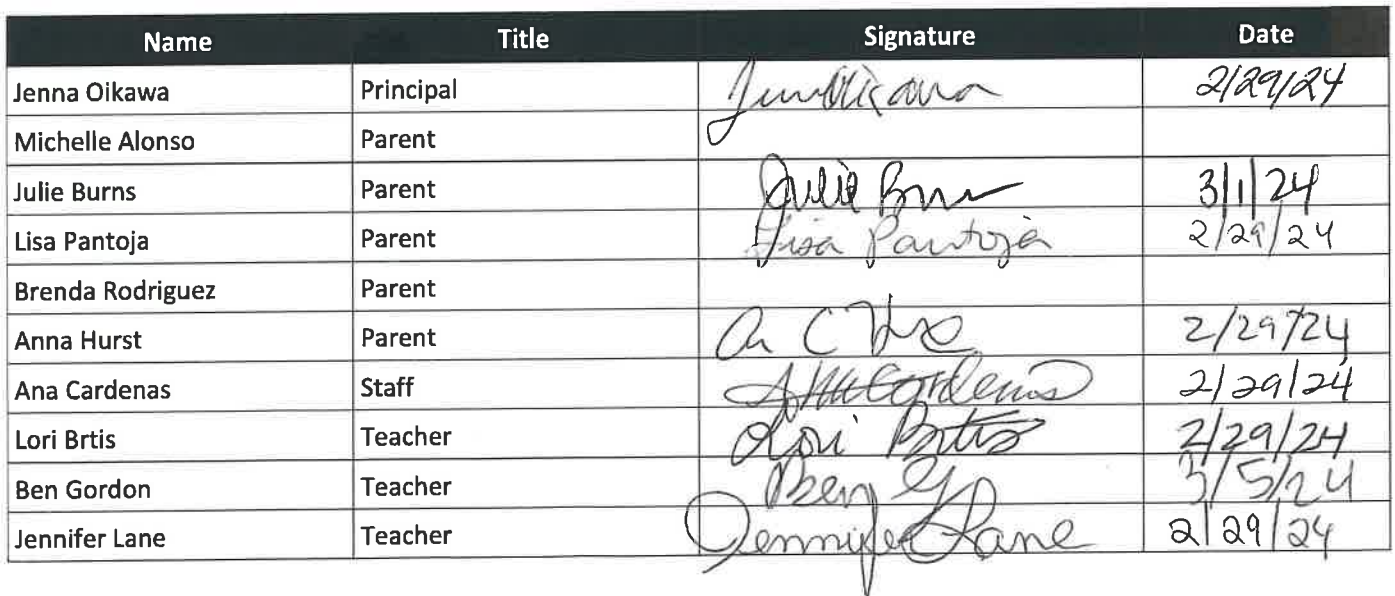 Name Title Signature Date
Jenna Oikawa Principal 2/29/24
Michelle Alonso Parent
Julie Burns Parent Julie 3/1/24
Lisa Pantoja Parent Lisa Pantoja 2/29/24
Brenda Rodriguez Parent
Anna Hurst Parent 2/29/24
Ana Cardenas Staff Cardenas 2/29/24
Lori Brtis Teacher Lori Brtis 2/29/24
Ben Gordon Teacher Ben G 3/5/24
Jennifer Lane Teacher Jennifer Lane 2/29/24